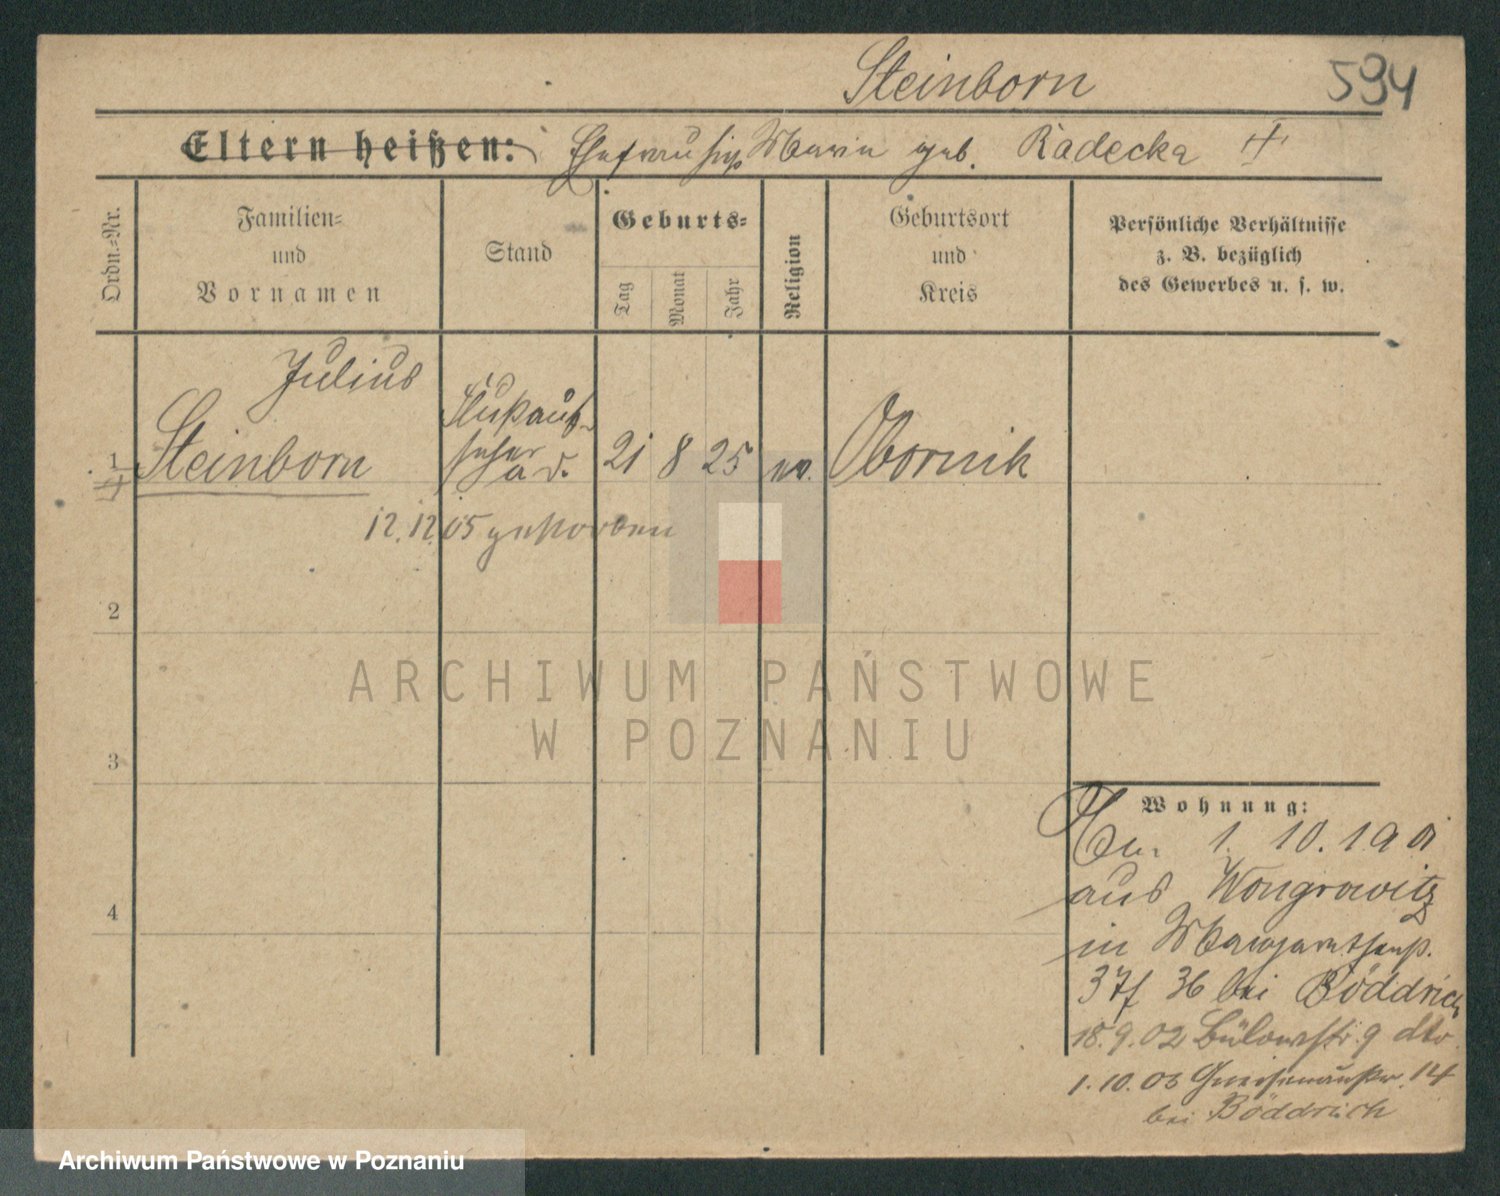 Steinborn
594
Eltern heißen: Ehefrau hieß Maria geb. Radecka
Ordn.=Nr.
Familien=
und
Vornamen
Stand
Geburts=
Tag
Monat
Jahr
Religion
Geburtsort
und
Kreis
Persönliche Verhältnisse
z. B. bezüglich
des Gewerbes u. s. w.
Julius
1 Steinborn
Flußauf-
seher
a. D.
21 8 25 ev. Obornik
12.12.05 gestorben
2
3
4
ARCHIWUM PAŃSTWOWE
W POZNANIU
Wohnung:
1. 10. 1901
aus Wongrowitz
in
37 36 bei Böddrich
18.9.02 Bülowstr. 9 dto
1.10.03 Gneisenaustr. 14
bei Böddrich
Archiwum Państwowe w Poznaniu